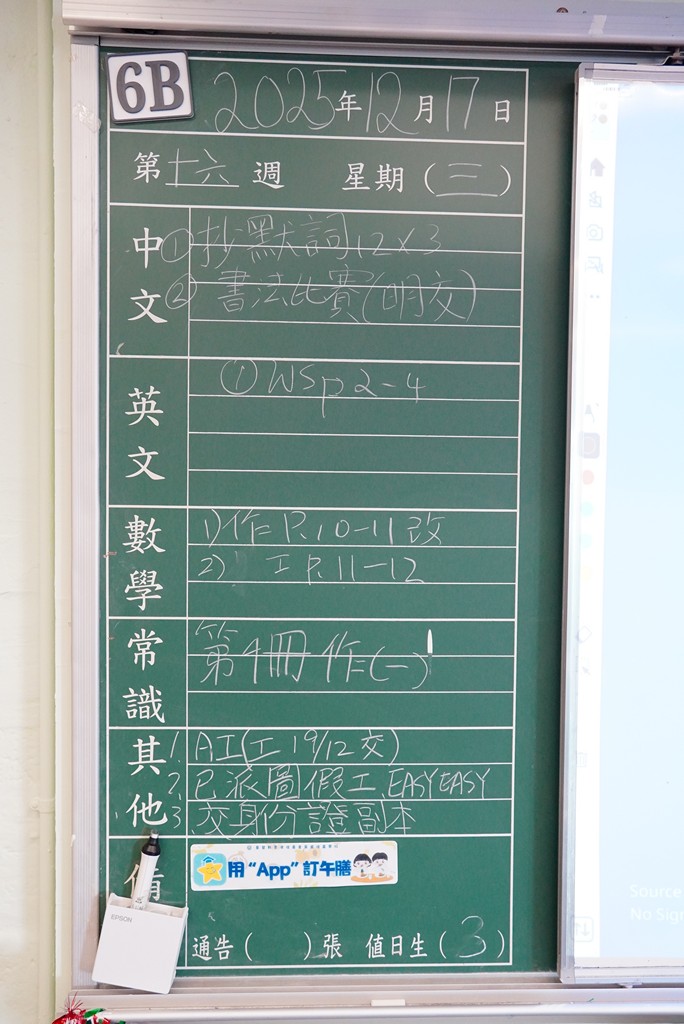 6B
2025年12月17日
第十六週 星期(三)
中文
①抄默詞12x3
②書法比賽(明交)
英文
①WSp2-4
數學
1)作P.10-11改
2) 工P.11-12
常識
第4冊作(一)
其他
1. AI(工19/12交)
2. 已派圖假工,EASYEASY
3. 交身份證副本
用"App"訂午膳
EPSON
通告( )張 值日生(3)
Source
No Sig